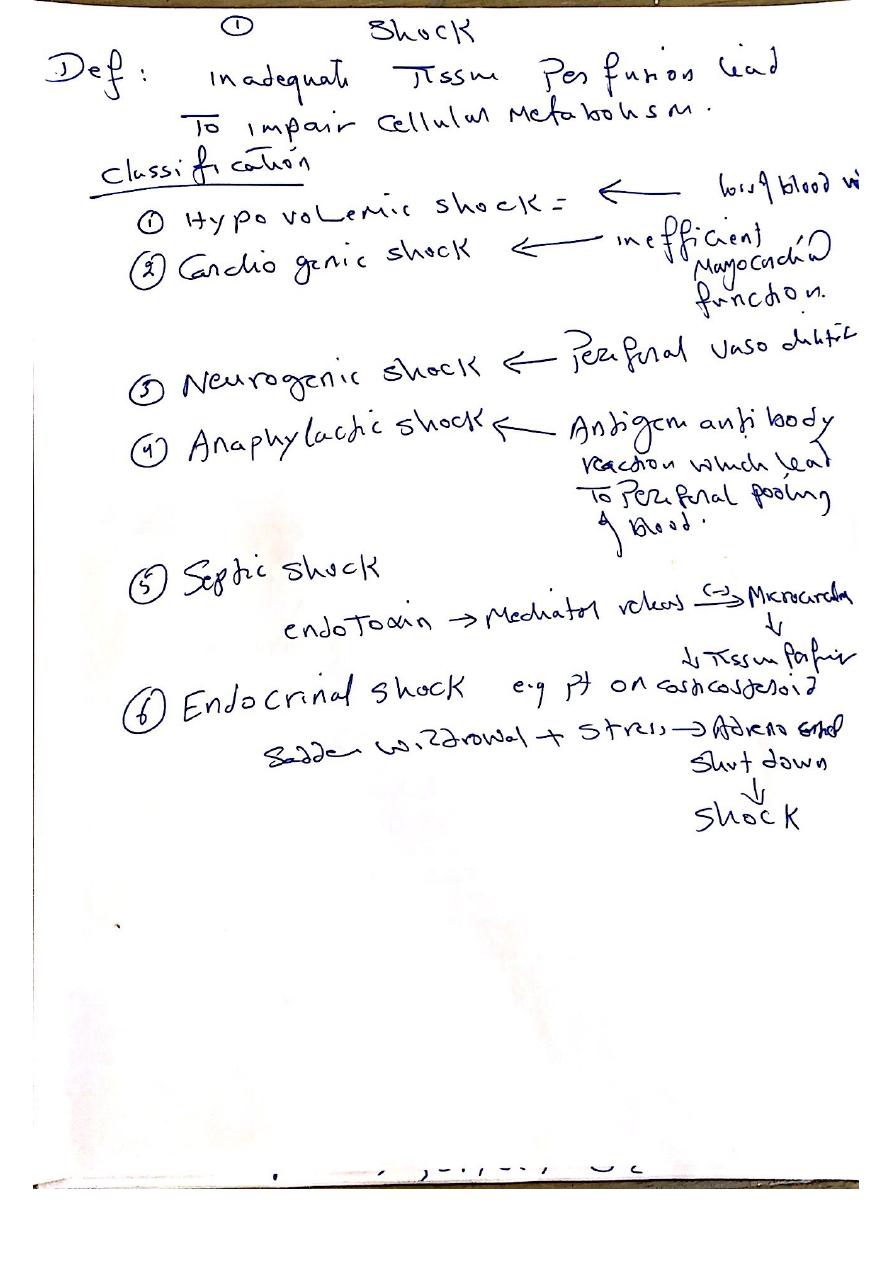 ① Shock
Def: inadequate Tissue Perfusion lead
To impair cellular Metabolism.
classification
① Hypovolemic shock = ← loss of blood
② Cardiogenic shock ← inefficient
Mayocardial
function.
③ Neurogenic shock ← Periferal vaso
④ Anaphylactic shock ← Antigen antibody
reaction which lead
To Periferal pooling
of blood.
⑤ Septic shock
endoToxin → Mediator (-)→
↓
↓ Tissue
⑥ Endocrinal shock e.g pt on
+ stress → Adreno
Shut down
↓
Shock